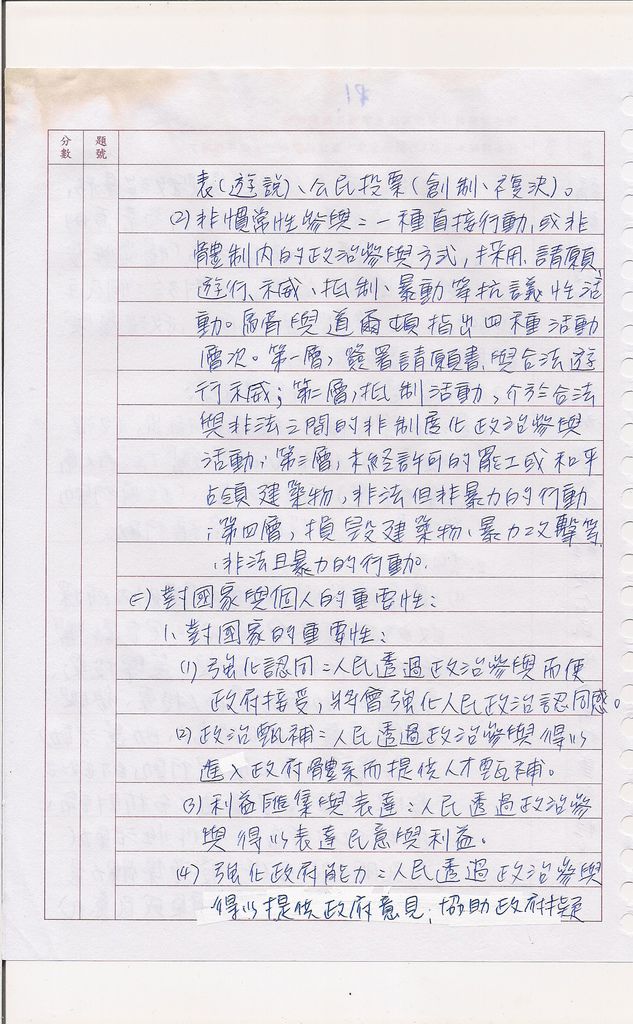 分數
題號
表(遊說)、公民投票(創制、複決)。
(2)非慣常性參與:一種直接行動,或非
體制內的政治參與方式,採用請願、
遊行、示威、抵制、暴動等抗議性活
動。與道爾頓指出四種活動
層次。第一層,簽署請願書與合法遊
行示威;第二層,抵制活動,介於合法
與非法之間的非制度化政治參與
活動;第三層,未經許可的罷工或和平
占領建築物,非法但非暴力的行動
;第四層,損毀建築物、暴力攻擊等
,非法且暴力的行動。
(二)對國家與個人的重要性:
1、對國家的重要性:
(1)強化認同:人民透過政治參與而使
政府接受,將會強化人民政治認同感。
(2)政治甄補:人民透過政治參與得以
進入政府體系而提供人才甄補。
(3)利益匯集與表達:人民透過政治參
與得以表達民意與利益。
(4)強化政府能力:人民透過政治參與
得以提供政府意見,協助政府擬